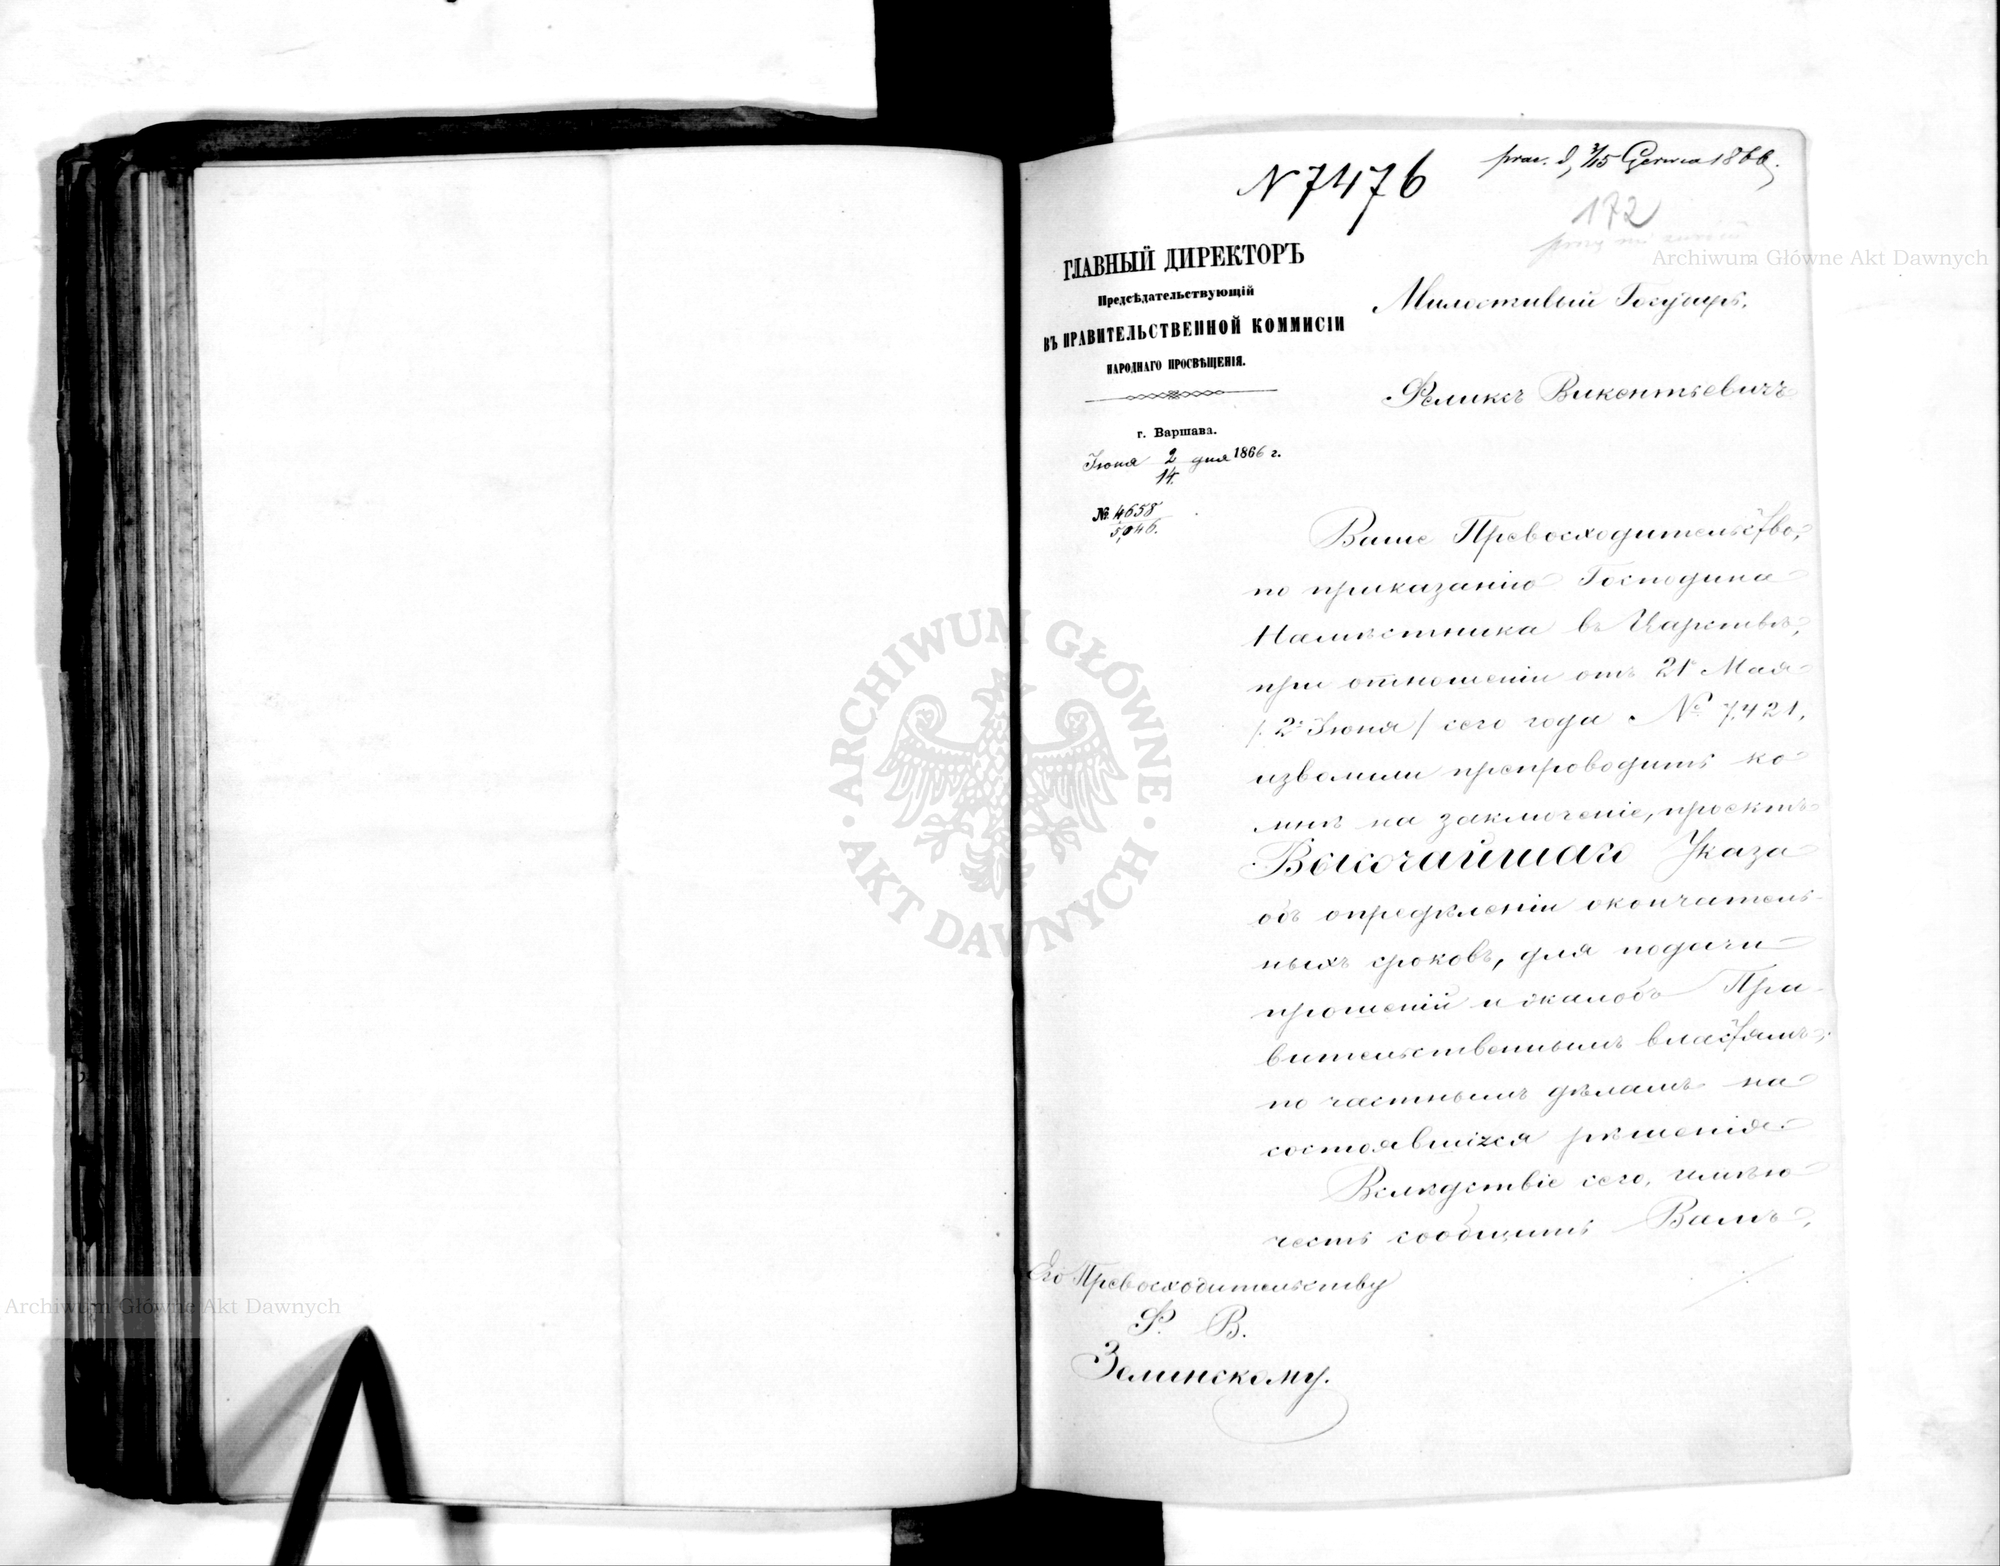 N 7476
prae. d. 3/15 Czerwca 1866.
172
ГЛАВНЫЙ ДИРЕКТОРЪ
Предсѣдательствующій
ВЪ ПРАВИТЕЛЬСТВЕННОЙ КОММИСІИ
НАРОДНАГО ПРОСВѢЩЕНІЯ.
г. Варшава.
Іюня 2/14. дня 1866 г.
№ 4658/5,046.
Милостивый Государь,
Феликсъ Викентьевичъ
Ваше Превосходительство,
по приказанію Господина
Намѣстника въ Царствѣ,
при отношеніи отъ 21 Мая
/: 2 Іюня / сего года № 7421,
изволили препроводить ко
мнѣ на заключеніе, проектъ
Высочайшаго Указа
объ опредѣленіи окончатель-
ныхъ сроковъ, для подачи
прошеній и жалобъ Пра-
вительственнымъ властямъ,
по частнымъ дѣламъ на
состоявшіяся рѣшенія.
Вслѣдствіе сего, имѣю
честь сообщить Вамъ,
Его Превосходительству
Ф. В.
Зелинскому.
Archiwum Główne Akt Dawnych
Archiwum Główne Akt Dawnych
ARCHIWUM GŁÓWNE
· AKT DAWNYCH ·